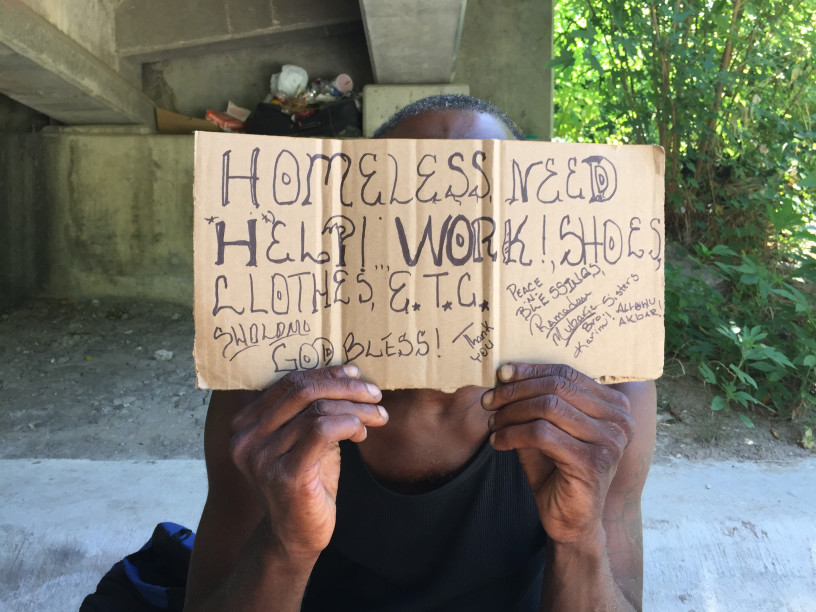 HOMELESS, NEED
*HELP! WORK!, SHOES,
CLOTHES, E.T.C.
SHOLOMO
GOD BLESS!
Thank
YOU
PEACE
'N'
BLESSINGS,
Ramadan
Mubaric Sisters
Bro. ALLAHU
Karim! AKBAR!